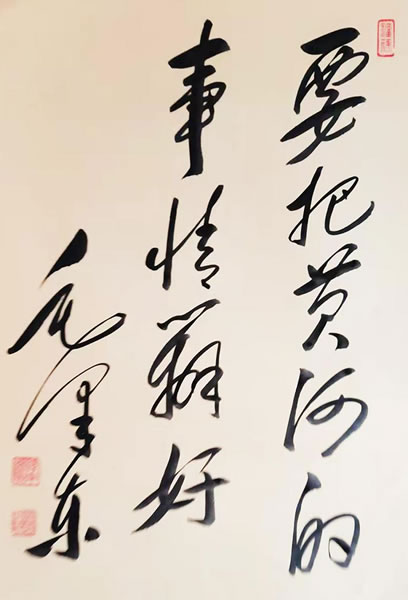 要把黄河的
事情办好
毛泽东